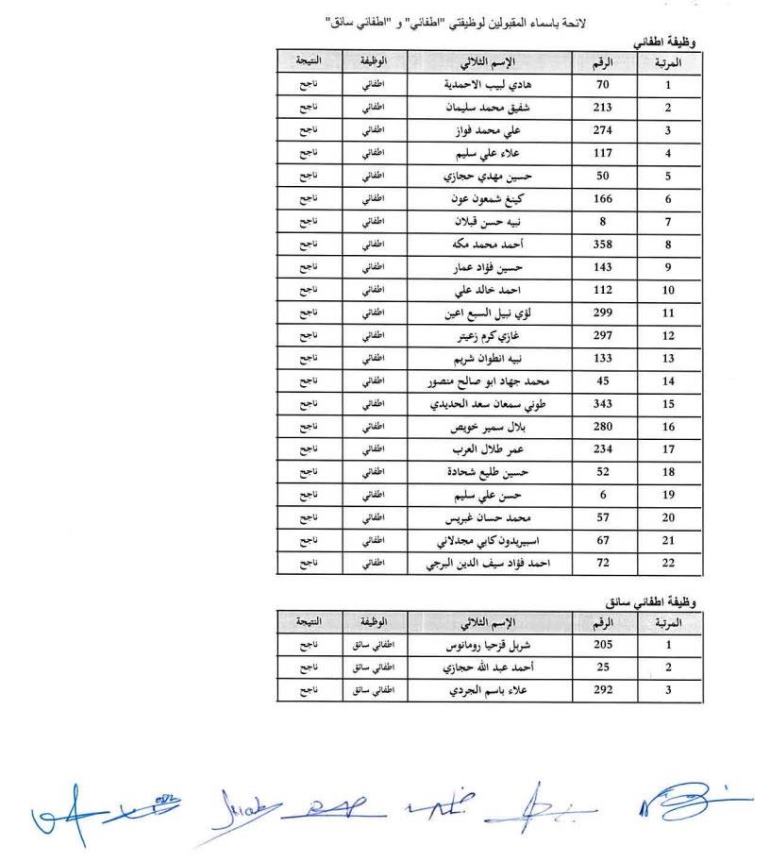 لائحة باسماء المقبولين لوظيفتي "اطفائي" و "اطفائي سائق"
وظيفة اطفائي
المرتبة الرقم الإسم الثلاثي الوظيفة النتيجة
1 70 هادي لبيب الاحمدية اطفائي ناجح
2 213 شفيق محمد سليمان اطفائي ناجح
3 274 علي محمد فواز اطفائي ناجح
4 117 علاء علي سليم اطفائي ناجح
5 50 حسين مهدي حجازي اطفائي ناجح
6 166 كينغ شمعون عون اطفائي ناجح
7 8 نبيه حسن قبلان اطفائي ناجح
8 358 أحمد محمد مكه اطفائي ناجح
9 143 حسين فؤاد عمار اطفائي ناجح
10 112 احمد خالد علي اطفائي ناجح
11 299 لؤي نبيل السبع اعين اطفائي ناجح
12 297 غازي كرم زعيتر اطفائي ناجح
13 133 نبيه انطوان شريم اطفائي ناجح
14 45 محمد جهاد ابو صالح منصور اطفائي ناجح
15 343 طوني سمعان سعد الحديدي اطفائي ناجح
16 280 بلال سمير خويص اطفائي ناجح
17 234 عمر طلال العرب اطفائي ناجح
18 52 حسين طليع شحادة اطفائي ناجح
19 6 حسن علي سليم اطفائي ناجح
20 57 محمد حسان غبريس اطفائي ناجح
21 67 اسبيريدون كابي مجدلاني اطفائي ناجح
22 72 احمد فؤاد سيف الدين البرجي اطفائي ناجح
وظيفة اطفائي سائق
المرتبة الرقم الإسم الثلاثي الوظيفة النتيجة
1 205 شربل قزحيا رومانوس اطفائي سائق ناجح
2 25 أحمد عبد الله حجازي اطفائي سائق ناجح
3 292 علاء باسم الجردي اطفائي سائق ناجح